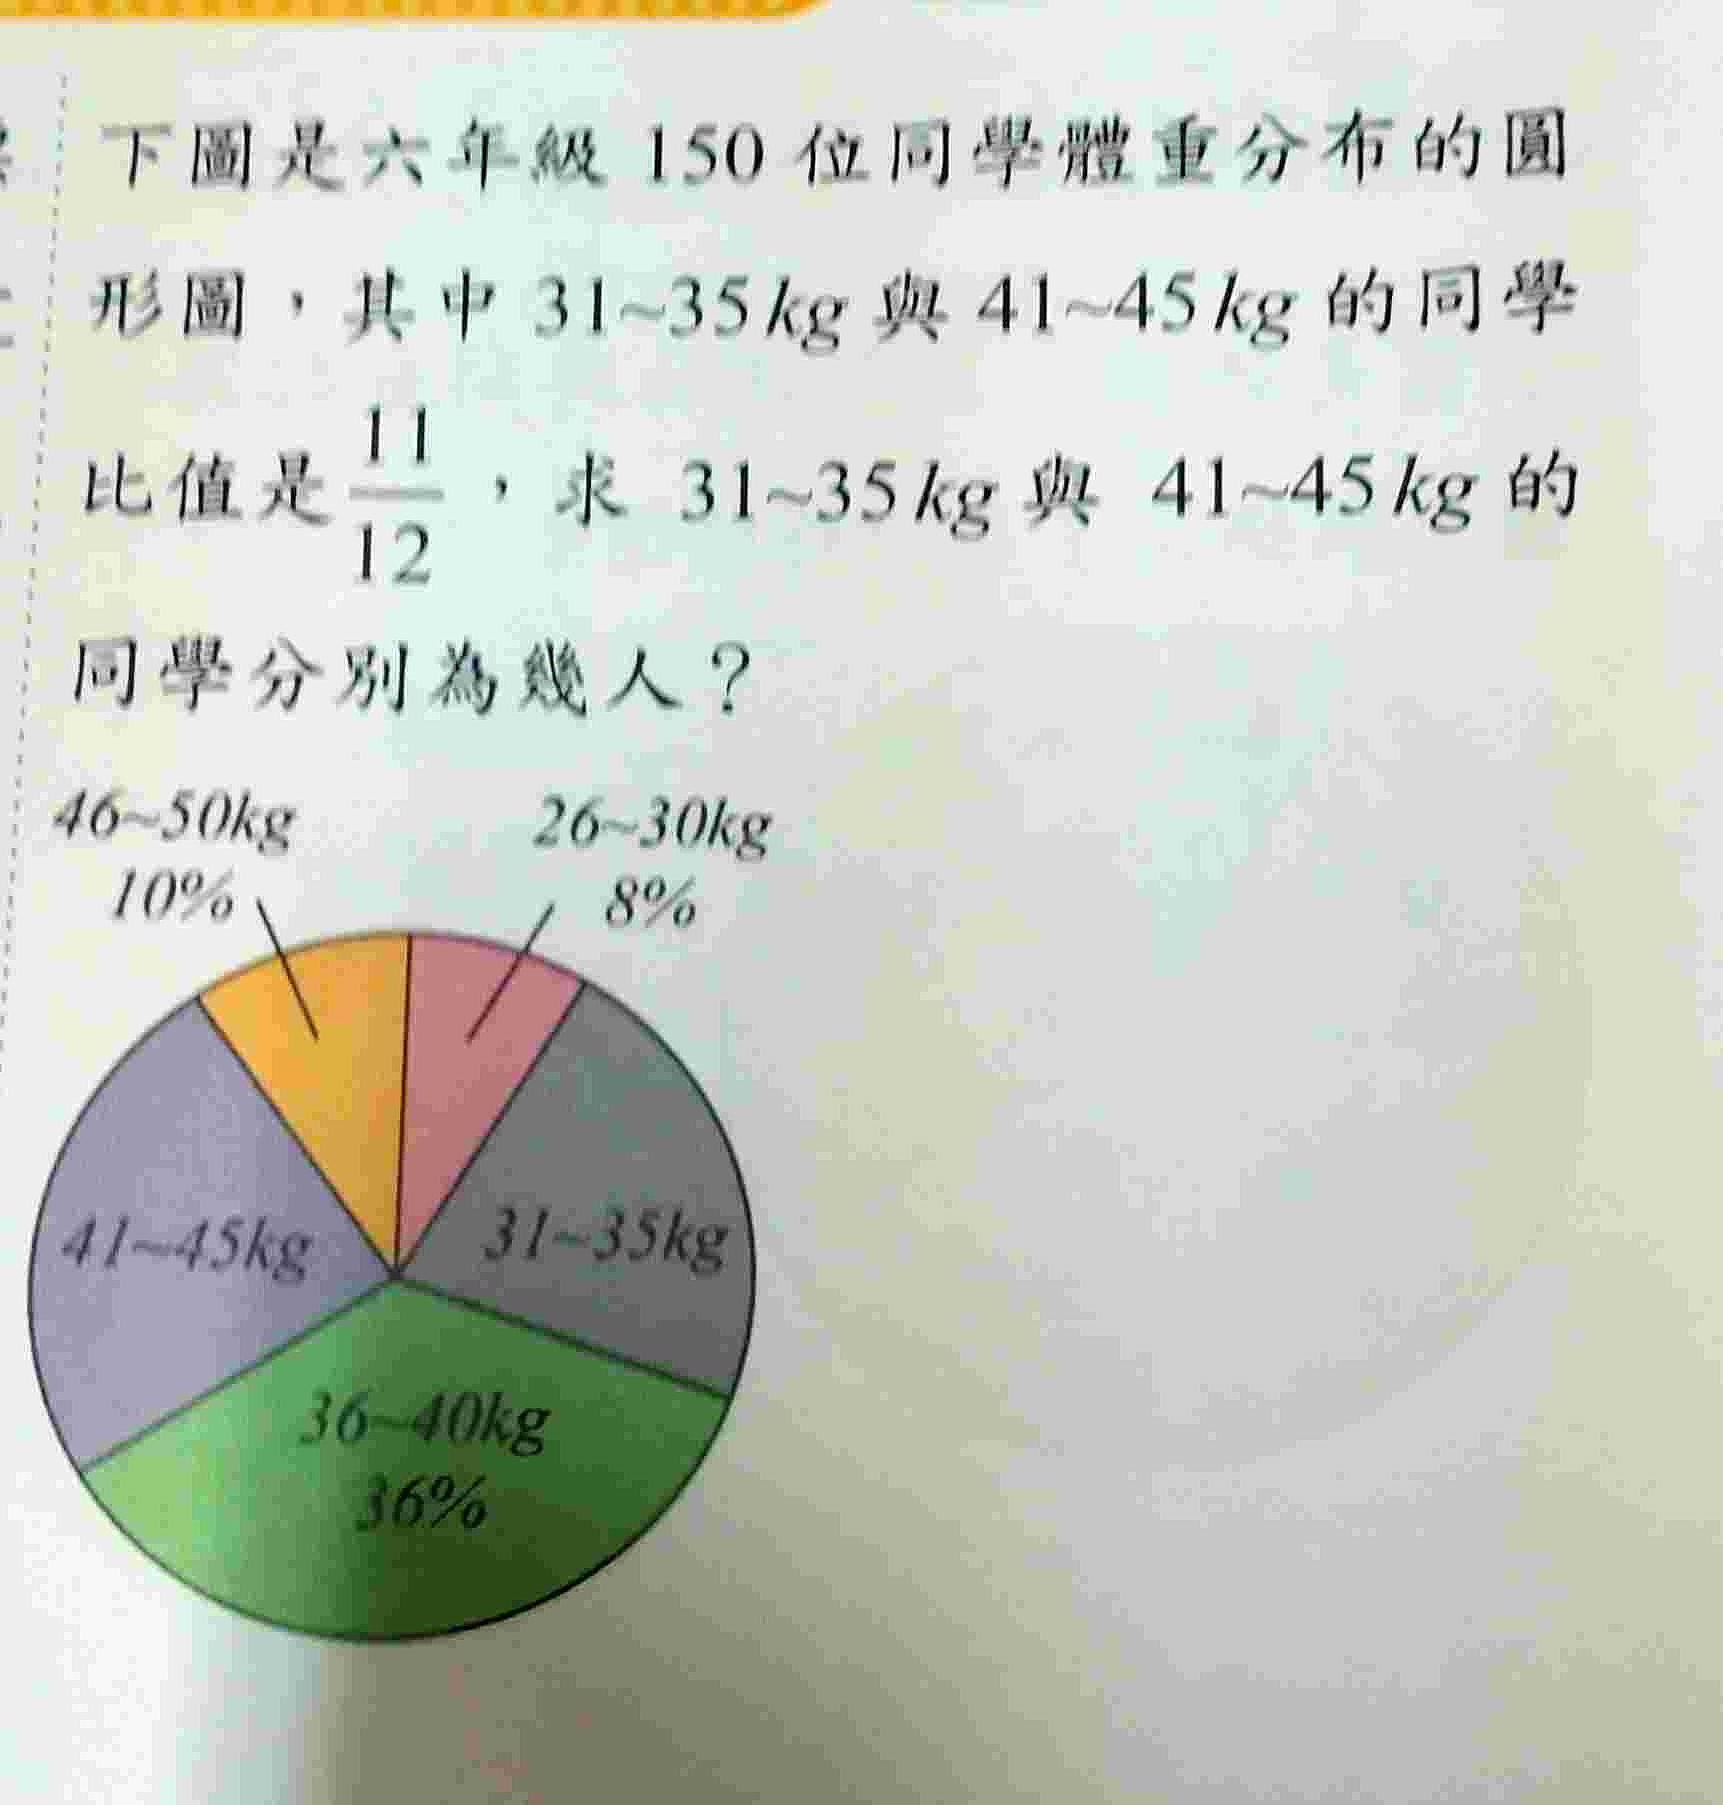 下圖是六年級 150 位同學體重分布的圓
形圖，其中 31~35kg 與 41~45kg 的同學
比值是 11/12，求 31~35kg 與 41~45kg 的
同學分別為幾人？
46~50kg
10%
26~30kg
8%
41~45kg
31~35kg
36~40kg
36%